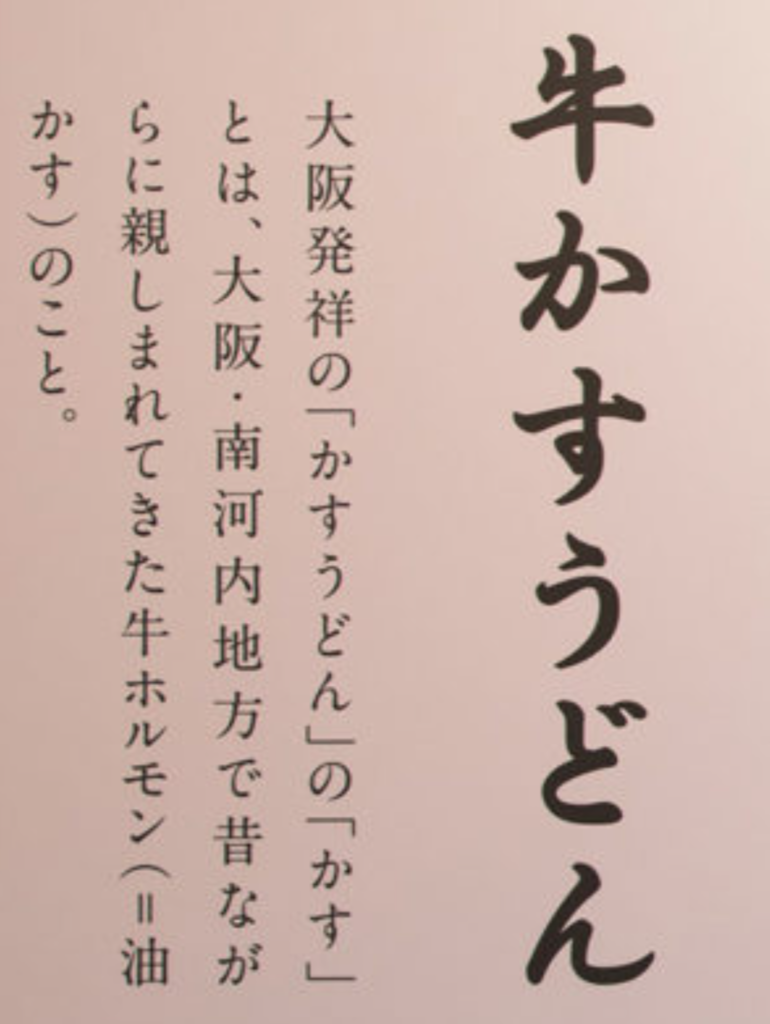 牛かすうどん
大阪発祥の「かすうどん」の「かす」
とは、大阪・南河内地方で昔なが
らに親しまれてきた牛ホルモン（＝油
かす）のこと。